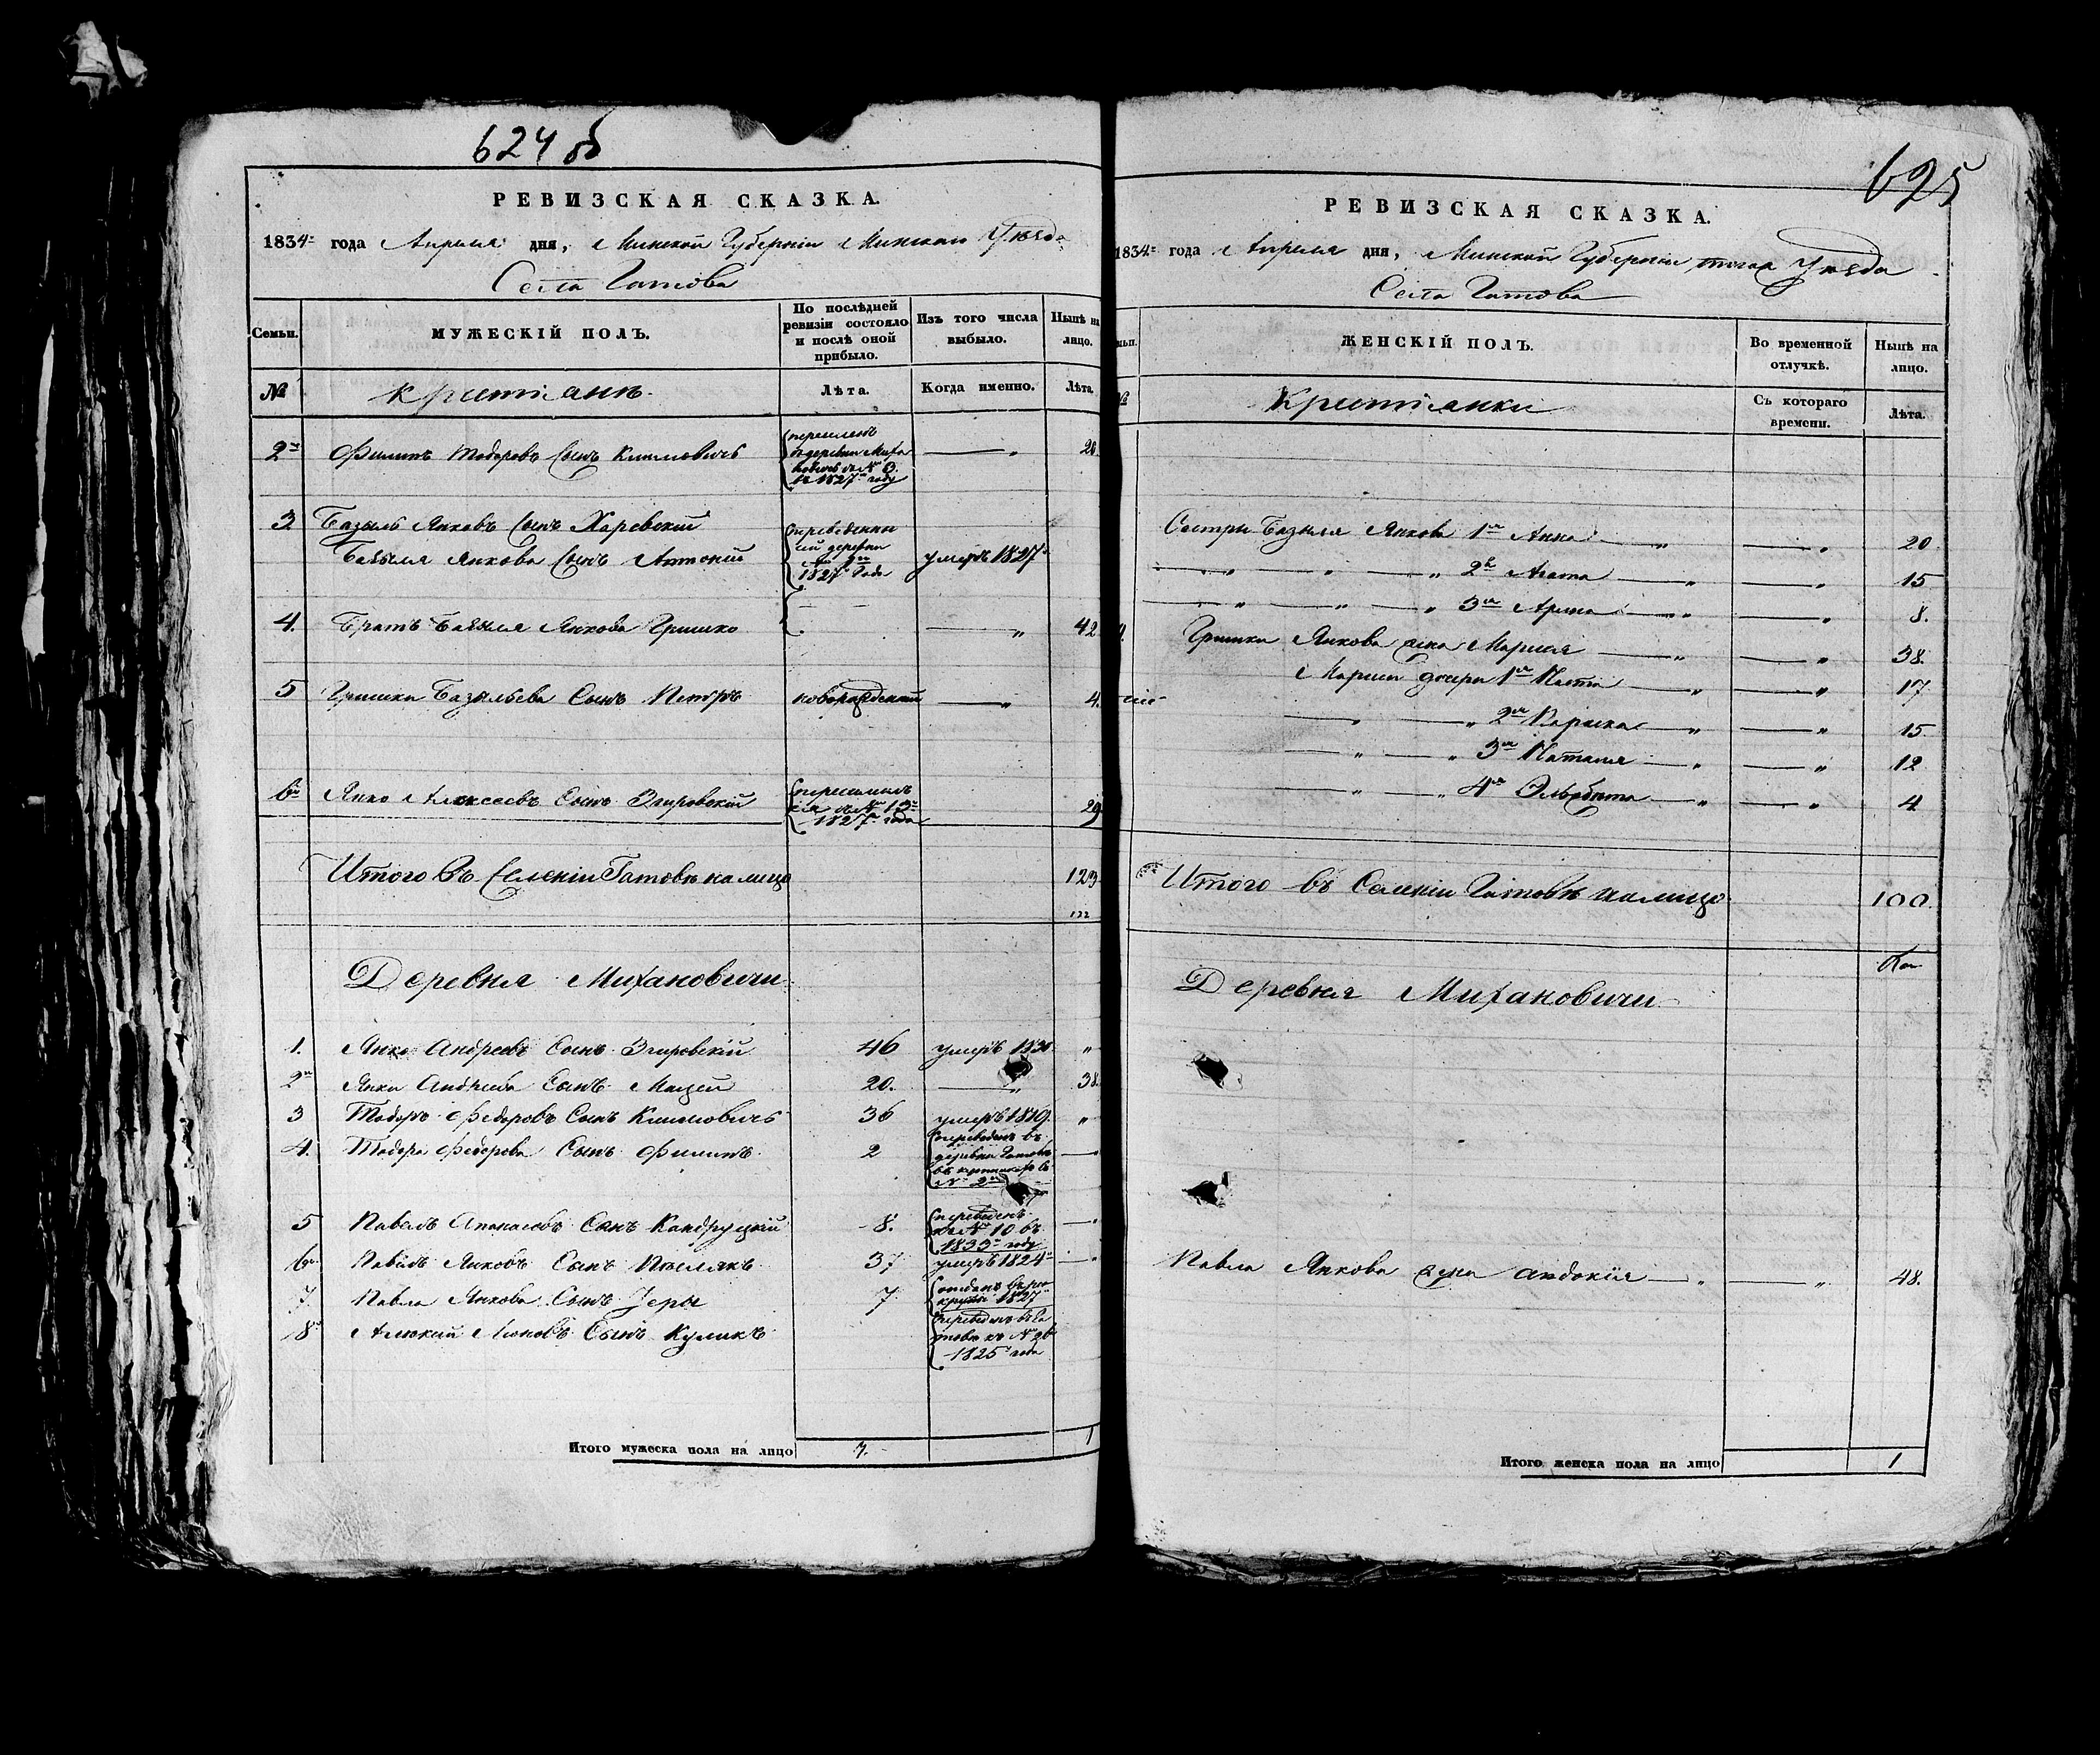 624 об
РЕВИЗСКАЯ СКАЗКА.
1834 года Апреля дня, Минской Губерніи Минскаго Уѣзда
Села Гатова
Семьи.
МУЖЕСКІЙ ПОЛЪ.
По послѣдней ревизіи состояло и послѣ оной прибыло.
Изъ того числа выбыло.
Нынѣ на лицо.
№
Крестіанѣ
Лѣта.
Когда именно.
Лѣта.
2 Филипъ Тодоровъ Сынъ Климовичъ
въ 1827 году
28
3 Базыль Янковъ Сынъ Харевскій
Базыля Янкова Сынъ Антоній
деревни
1827 года
умеръ 1827
4. Братъ Базыля Янкова Гришко — " 42
5 Гришки Базыльева Сынъ Петръ новорожденный — " 4.
6 Янко Алексеевъ Сынъ Згировскій
№ 13
1827 года
29
Итого Въ Селеніи Гатовѣ на лицо 123
122
Деревня Михановичи
1. Янко Андреевъ Сынъ Згировскій 46 умеръ 1830 "
2 Янки Андреева Сынъ Мацей 20. — " 38.
3 Тодоръ Федоровъ Сынъ Климовичъ 36 умеръ 1819. "
4. Тодора Федорова Сынъ Филипъ 2
переведенъ въ
№ 2
5 Павелъ Апанасовъ Сынъ Кандруцкій 8.
переведенъ
№ 10 въ
1833 году
6 Павелъ Янковъ Сынъ 37 умеръ 1824 — "
7. Павла Янкова Сынъ 7
отданъ въ ре
круты 1827
8 Сынъ Куликъ
переведенъ въ Га
тово къ № 26
1825 года
Итого мужеска пола на лицо 7. 1
625
РЕВИЗСКАЯ СКАЗКА.
1834 года Апреля дня, Минской Губерніи того Уѣзда
Села Гатова
ЖЕНСКІЙ ПОЛЪ.
Во временной отлучкѣ.
Нынѣ на лицо.
№
Крестіянки
Съ котораго времени.
Лѣта.
Сестры Базыля Янкова 1я Анна — " — " 20
" " " 2я Агата — " — " 15
" — " — " 3я — " — " 8.
Гришки Янкова жена Марыя — " — " 38.
Марыи дочери 1я Настя — " — " 17
— " — " 2я — " — " 15
— " — " 3я Наталя — " — " 12
— " — " 4я Эльзбета — " — " 4
Итого въ Селеніи Гатовѣ налицо 100.
Деревня Михановичи
Павла Янкова жена Авдокія — " — " 48.
Итого женска пола на лицо 1